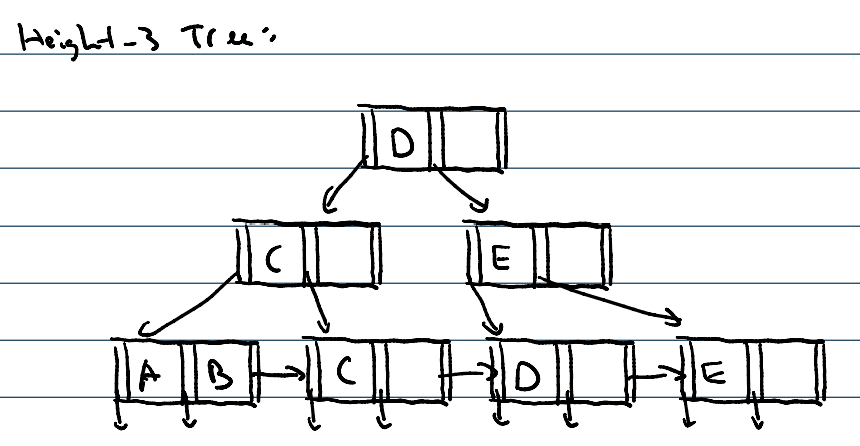 Height-3 Tree:
D
C E
A B C D E